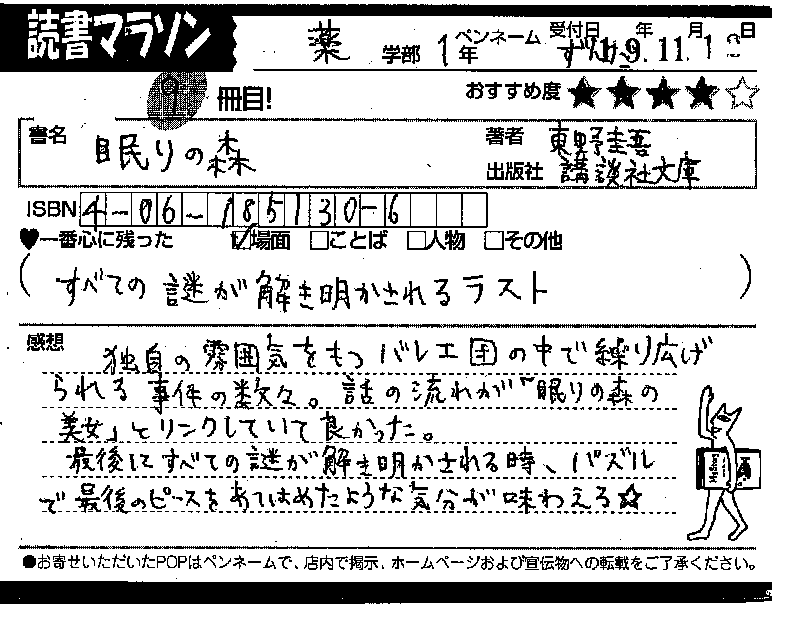 読書マラソン
薬 学部 1年 ペンネーム ずんだ 受付日 年 月 日
19.11.1
9 冊目!
おすすめ度 ★★★★☆
書名 眠りの森
著者 東野圭吾
出版社 講談社文庫
ISBN 4-06-185130-6
♥一番心に残った ☑場面 □ことば □人物 □その他
(すべての謎が解き明かされるラスト)
感想 独自の雰囲気をもつバレエ団の中で繰り広げ
られる事件の数々。話の流れが"眠りの森の
美女」とリンクしていて良かった。
最後にすべての謎が解き明かされる時、パズル
で最後のピースをあてはめたような気分が味わえる☆
●お寄せいただいたPOPはペンネームで、店内で掲示、ホームページおよび宣伝物への転載をご了承ください。